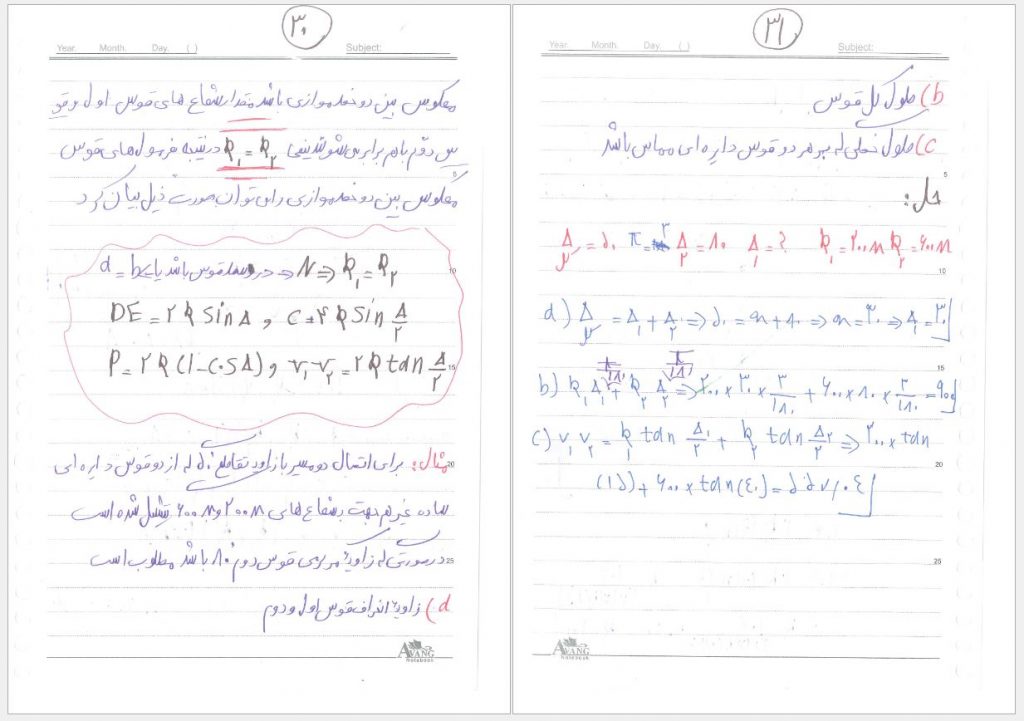 ۳۰
Year. Month. Day. ( ) Subject:
معکوس بین دو خط موازی باشد مقدار شعاع های قوس اول و قو
س دوم با هم برابر می شوند یعنی R₁ = R₂ در نتیجه فرمول های قوس
معکوس بین دو خط موازی را می توان بصورت ذیل بیان کرد
R₁ = R₂ ⇐ N ⇐ در وسط قوس باشد یا
DE = ۲R sin Δ , C = ۴R sin Δ/۲
P = ۲R(۱-cos Δ) , V₁V₂ = ۲R tan Δ/۲
مثال: برای اتصال دو مسیر با زاویه تقاطع ۵۰° که از دو قوس دایره ای
ساده غیر هم جهت به شعاع های ۲۰۰m و ۶۰۰m تشکیل شده است
در صورتی که زاویه مرکزی قوس دوم ۸۰° باشد مطلوب است
a) زاویه انحراف قوس اول و دوم
AVANG
Notebook
۳۱
Year. Month. Day. ( ) Subject:
b) طول کل قوس
c) طول خطی که بر هر دو قوس دایره ای مماس باشد
حل:
Δ = ۵۰ π = ۳ Δ₂ = ۸۰ Δ₁ = ? R₁ = ۲۰۰m R₂ = ۶۰۰m
a) Δ = Δ₁ + Δ₂ ⇒ ۵۰ = x + ۸۰ ⇒ x = ۳۰ ⇒ Δ₁ = ۳۰
π/۱۸۰ π/۱۸۰
b) R₁Δ₁ + R₂Δ₂ ⇒ ۲۰۰ × ۳۰ × ۳/۱۸۰ + ۶۰۰ × ۸۰ × ۳/۱۸۰ = ۹۰۰
c) V₁V₂ = R₁ tan Δ₁/۲ + R₂ tan Δ₂/۲ ⇒ ۲۰۰ × tan
(۱۵) + ۶۰۰ × tan(۴۰) = ۵۵۷/۰۴
AVANG
Notebook